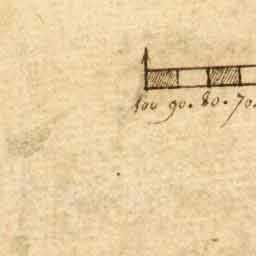 100 90. 80. 70.